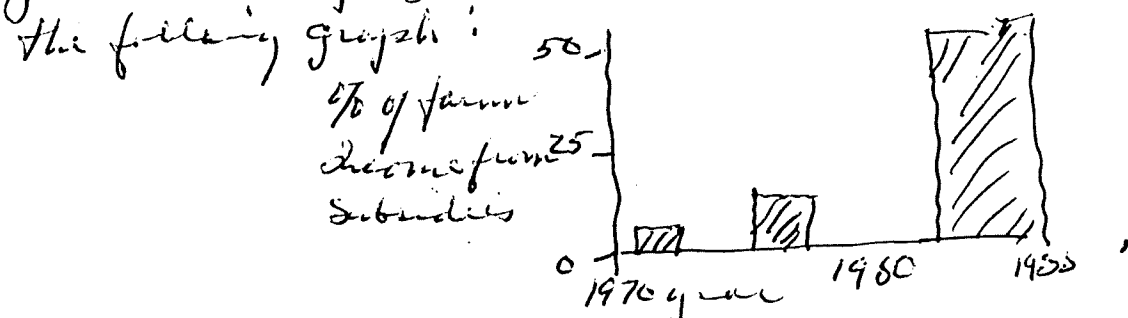 the following graph:
50
% of farm
income from 25
subsidies
0
1970 year 1980 1988